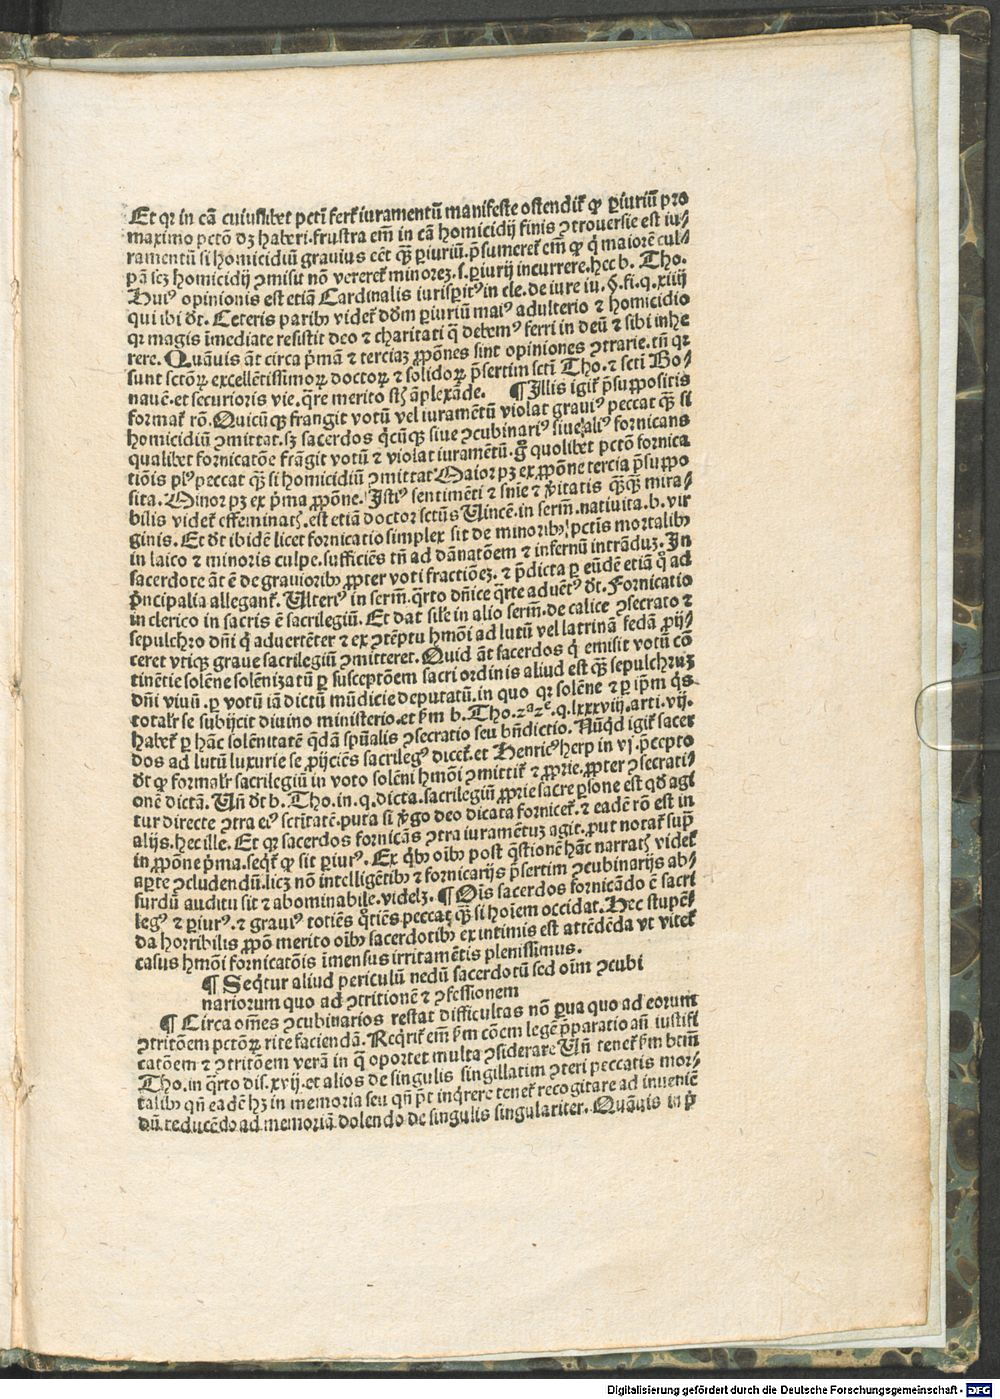 Et qr in cā cuiuslibet petī ferť iuramentū manifeste ostendiť ꝙ ꝑiuriū pro
maximo pctō dꝫ haberi. frustra em̄ in cā homicidij finis ꝯtrouersie est iu⸗
ramentū si homicidiū grauius eēt qͣꝫ ꝑiuriū. p̄sumereť em̄ ꝙ q̇ maiorē cul⸗
pā scꝫ homicidij ꝯmisit nō verereť minorez. s. ꝑiurij incurrere. hec b. Tho.
Huiꝰ opinionis est etiā Cardinalis iurisꝑitꝰ in cle. de iure iu. §. fi. q. xiiij
qui ibi dt̄. Ceteris paribꝫ videť dōm ꝑiuriū maiꝰ adulterio ⁊ homicidio
qr magis īmediate resistit deo ⁊ charitati q̄ debemꝰ ferri in deū ⁊ sibi inhe
rere. Quāuis āt circa p̄mā ⁊ terciaꝫ ꝓpōnes sint opiniones ꝯtrarie. tn̄ qr
sunt sctōꝝ excellētissimoꝝ doctoꝝ ⁊ solidoꝝ p̄sertim scti Tho. ⁊ scti Bo⸗
nauē. et securioris vie. q̄re merito st̄ āplexāde. ¶ Illis igiť p̄suppositis
formať rō. Quicūqꝫ frangit votū vel iuramētū violat grauiꝰ peccat qͣꝫ si
homicidiū ꝯmittat. sꝫ sacerdos q̇cūqꝫ siue ꝯcubinariꝰ siue aliꝰ fornicans
qualibet fornicatōe frāgit votū ⁊ violat iuramētū. gͦ quolibet pctō fornica
tiōis plꝰ peccat qͣꝫ si homicidiū ꝯmittat Maior pꝫ ex ꝓpōne tercia p̄suppo
sita. Minor pꝫ ex p̄ma ꝓpōne. Istiꝰ sentimēti ⁊ sn̄ie ⁊ v̄itatis qͣꝫqͣꝫ mira⸗
bilis videť effeminatꝭ. est etiā doctor sctūs Uincē. in serm̄. natiuita. b. vir
ginis. Et dt̄ ibidē licet fornicatio simplex sit de minoribꝫ pctīs mortalibꝫ
in laico ⁊ minoris culpe. sufficiēs tn̄ ad dānatōem ⁊ infernū intrāduꝫ. In
sacerdote āt ē de grauioribꝫ ꝓpter voti fractiōeꝫ. ⁊ p̄dicta ꝑ eūdē etiā qͦ ad
p̄ncipalia alleganť. Ulteriꝰ in serm̄. q̄rto dn̄ice q̄rte aduētꝰ dt̄. Fornicatio
in clerico in sacris ē sacrilegiū. Et dat sil'e in alio serm̄. de calice ꝯsecrato ⁊
sepulchro dn̄i q̇ aduertēter ⁊ ex ꝯtēptu hmōi ad lutū vel latrinā fedā ꝓij⸗
ceret vtiqꝫ graue sacrilegiū ꝯmitteret. Quid āt sacerdos q̇ emisit votū cō
tinētie solēne solēnizatū ꝑ susceptōem sacri ordinis aliud est qͣꝫ sepulchruꝫ
dn̄i viuū. ꝑ votū iā dictū mūdicie deputatū. in quo qr solēne ⁊ ꝑ ip̄m q̇s
totalr̄ se subijcit diuino ministerio. et ẜm b. Tho. 2ᵃ2ᵉ. q. lxxxviij. arti. vij.
habeť ꝑ hāc solēnitatē q̇dā spūalis ꝯsecratio seu bn̄dictio. Nūqd igiť sacer
dos ad lutū luxurie se ꝓijciēs sacrilegꝰ diceť. et Henricꝰ herp in vj. p̄cepto
dt̄ ꝙ formalr̄ sacrilegiū in voto solēni hmōi ꝯmittiť ⁊ ꝓprie. ꝓpter ꝯsecrati⸗
onē dictā. Un̄ dt̄ b. Tho. in. q. dicta. sacrilegiū ꝓprie sacre ꝑsone est qd̄ agi
tur directe ꝯtra eiꝰ sctītatē. puta si v̇go deo dicata forniceť. ⁊ eadē rō est in
alijs. hec ille. Et qr sacerdos fornicās ꝯtra iuramētuꝫ agit. ꝓut notať sup̄
in ꝓpōne p̄ma. seq̇ť ꝙ sit ꝑiurꝰ. Ex q̇bꝫ oībꝫ post q̄stionē hāc narratꝭ videť
aꝑte ꝯcludendū. licꝫ nō intelligētibꝫ ⁊ fornicarijs p̄sertim ꝯcubinarijs ab⸗
surdū auditu sit ⁊ abominabile. videlꝫ. ¶ Ois sacerdos fornicādo ē sacri
legꝰ ⁊ ꝑiurꝰ. ⁊ grauiꝰ totiēs q̇tiēs peccat qͣꝫ si hoīem occidat. Hec stupē⸗
da horribilis ꝓpō merito oībꝫ sacerdotibꝫ ex intimis est attēdēda vt viteť
casus hmōi fornicatōis īmensus irritamētis plenissimus.
¶ Seq̇tur aliud periculū nedū sacerdotū sed oīm ꝯcubi
nariorum quo ad ꝯtritionē ⁊ ꝯfessionem
¶ Circa om̄es ꝯcubinarios restat difficultas nō ꝑua quo ad eorum
ꝯtritōem pctōꝝ rite faciendā. Req̇riť em̄ ẜm cōem legē p̄paratio an̄ iustifi
catōem ⁊ ꝯtritōem verā in q̄ oportet multa ꝯsiderare Un̄ teneť ẜm btm̄
Tho. in q̄rto dis. xvij. et alios de singulis singillatim ꝯteri peccatis mor⸗
talibꝫ qn̄ eadē hꝫ in memoria seu qn̄ p̄t inq̇rere teneť recogitare ad inueniē
dū reducēdo ad memoriā dolendo de singulis singulariter. Quāuis in p̄
Digitalisierung gefördert durch die Deutsche Forschungsgemeinschaft - DFG